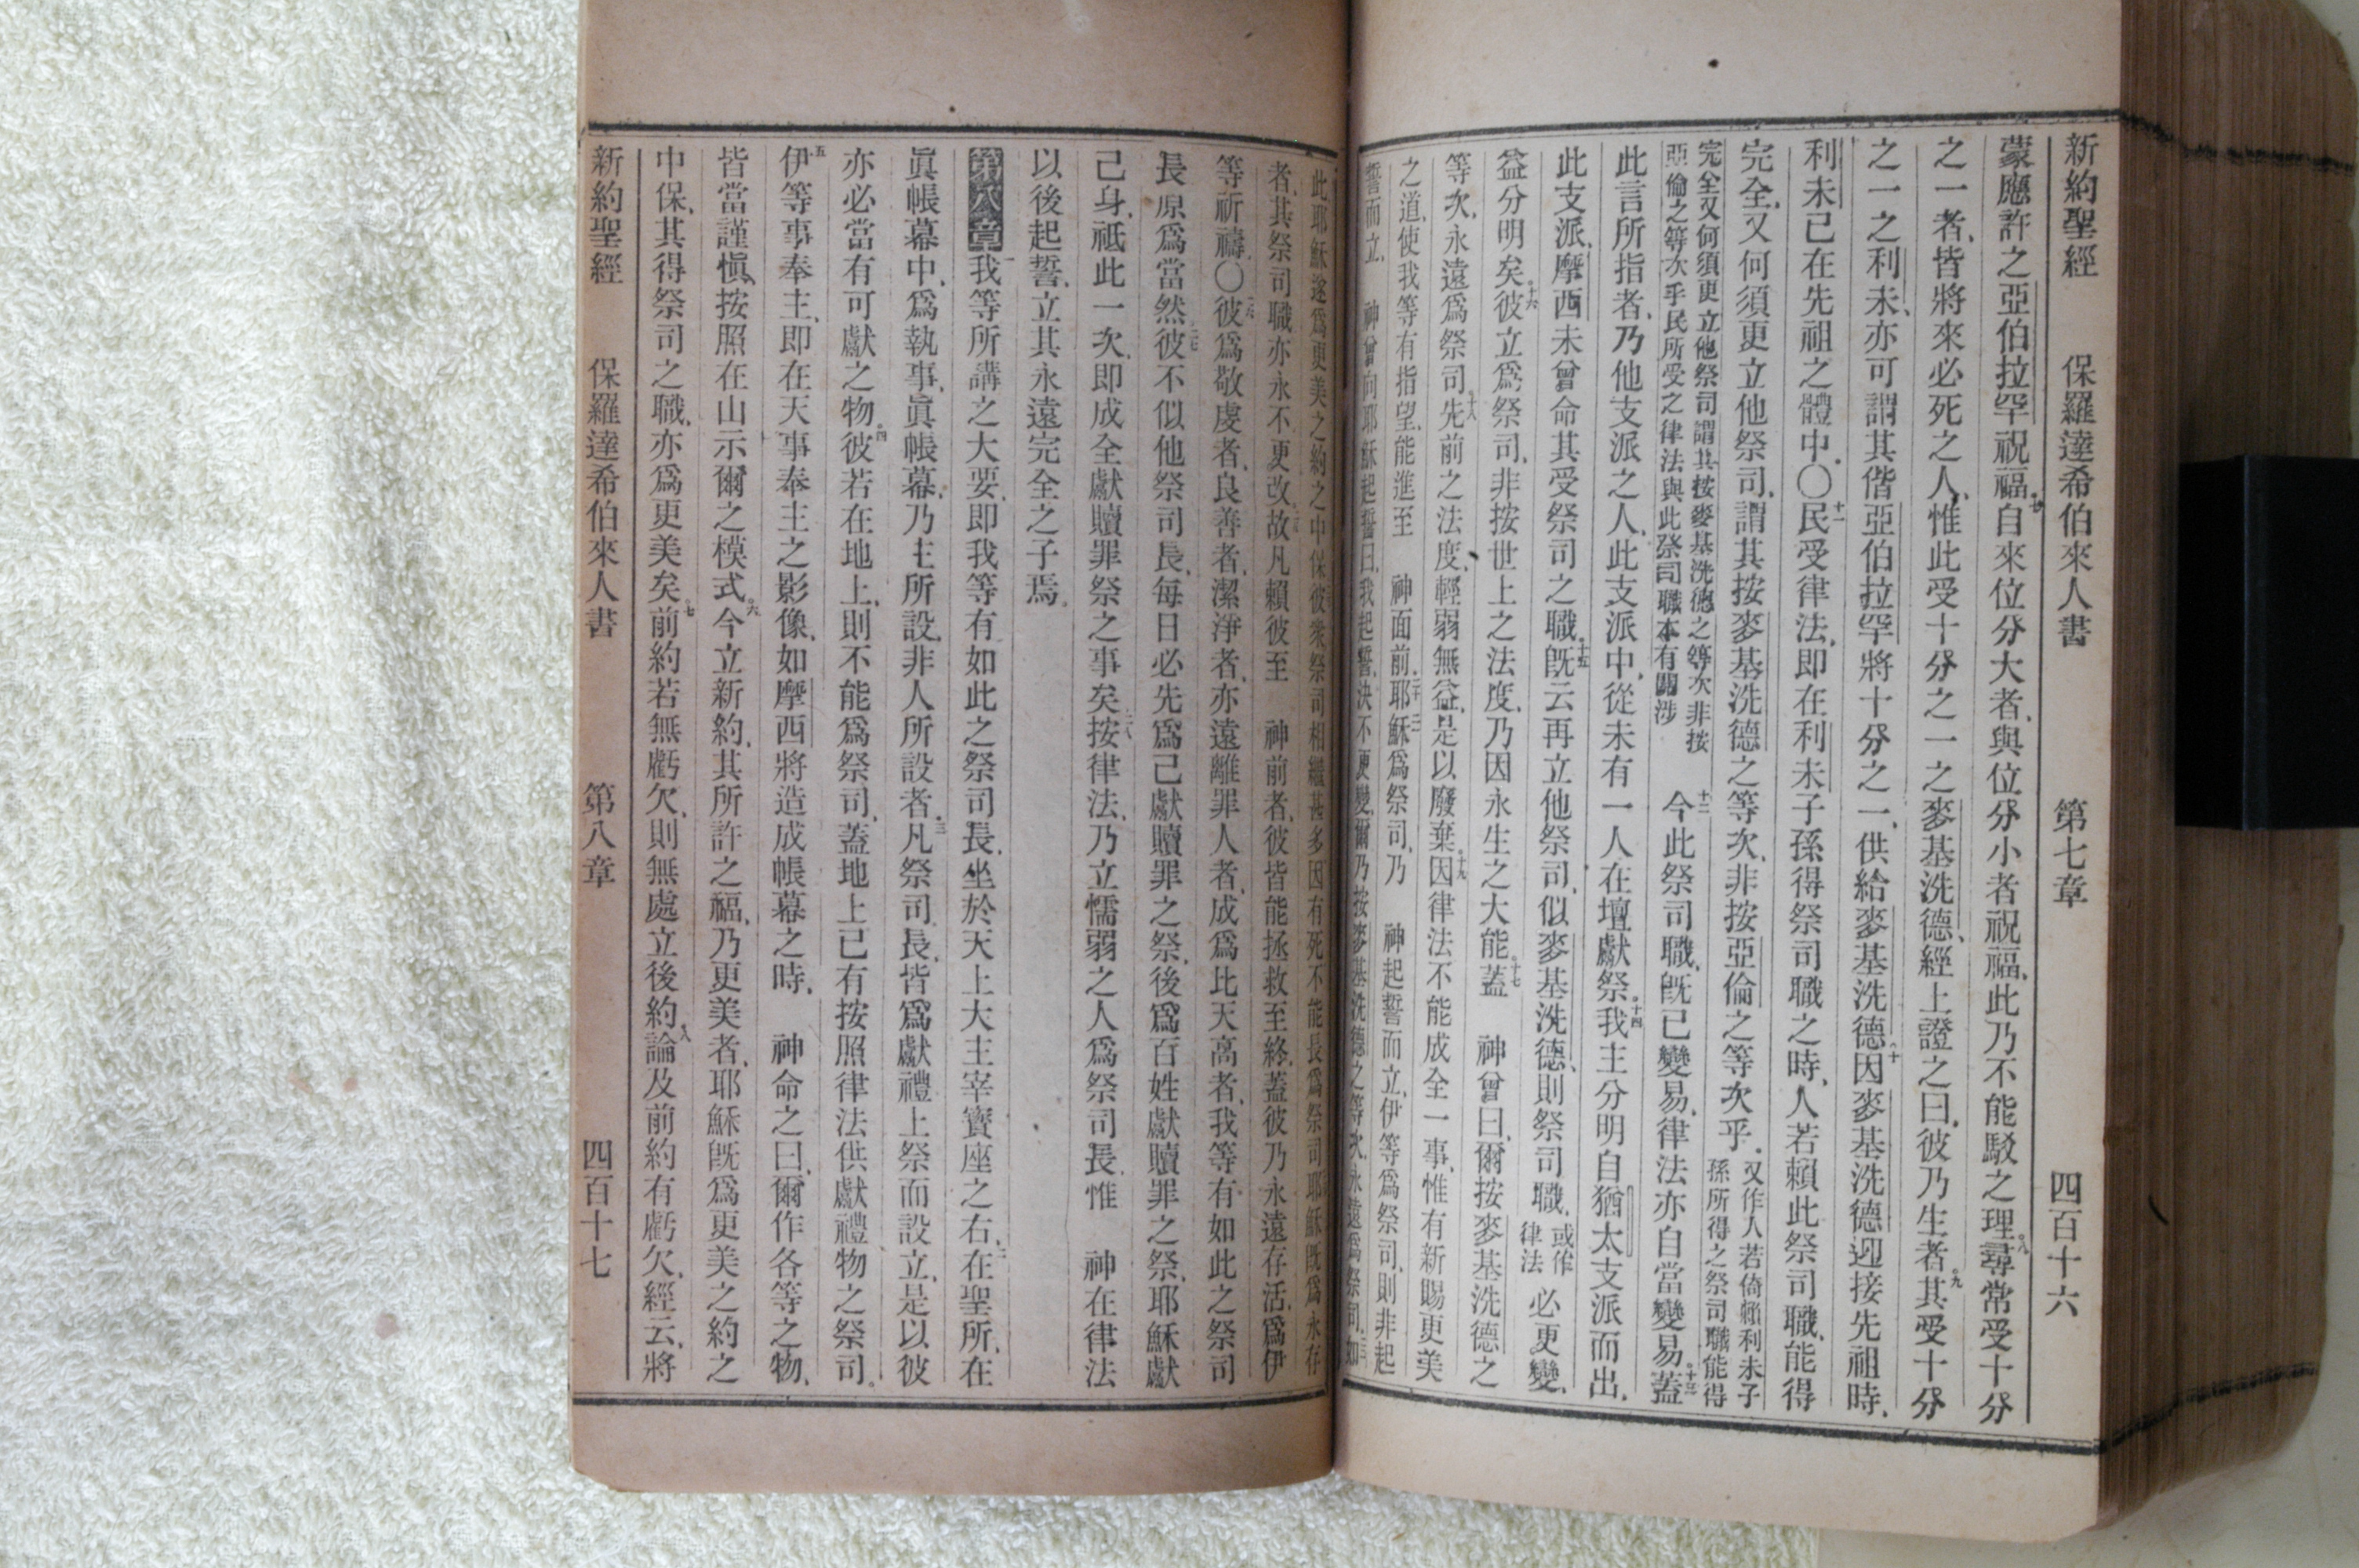 新約聖經 保羅達希伯來人書 第七章 四百十六
蒙應許之亞伯拉罕祝福。七自來位分大者、與位分小者祝福、此乃不能駁之理。八尋常受十分
之一者、皆將來必死之人、惟此受十分之一之麥基洗德、經上證之曰、彼乃生者。九其受十分
之一之利未、亦可謂其偕亞伯拉罕將十分之一、供給麥基洗德。十因麥基洗德迎接先祖時、
利未已在先祖之體中。〇十一民受律法、即在利未子孫得祭司職之時、人若賴此祭司職、能得
完全、又何須更立他祭司、謂其按麥基洗德之等次、非按亞倫之等次乎。又作人若倚賴利未子孫所得之祭司職能得
完全又何須更立他祭司謂其按麥基洗德之等次非按亞倫之等次乎民所受之律法與此祭司職本有關涉 十二今此祭司職、旣已變易、律法亦自當變易。十三蓋
此言所指者、乃他支派之人、此支派中、從未有一人在壇獻祭。十四我主分明自猶太支派而出、
此支派、摩西未曾命其受祭司之職。十五旣云再立他祭司、似麥基洗德、則祭司職、或作律法必更變、
益分明矣。十六彼立爲祭司、非按世上之法度、乃因永生之大能。十七蓋 神曾曰、爾按麥基洗德之
等次、永遠爲祭司。十八先前之法度、輕弱無益、是以廢棄。十九因律法不能成全一事、惟有新賜更美
之道、使我等有指望、能進至 神面前。二十耶穌爲祭司、乃 神起誓而立、伊等爲祭司、則非起
誓而立、 神曾向耶穌起誓曰、我起誓、決不更變、爾乃按麥基洗德之等次、永遠爲祭司、如
此耶穌遂爲更美之約之中保、彼衆祭司相繼甚多、因有死不能長爲祭司、耶穌旣爲永存
者、其祭司職亦永不更改、故凡賴彼至 神前者、彼皆能拯救至終、蓋彼乃永遠存活、爲伊
等祈禱。〇二六彼爲敬虔者、良善者、潔淨者、亦遠離罪人者、成爲比天高者、我等有如此之祭司
長、原爲當然。二七彼不似他祭司長、每日必先爲己獻贖罪之祭、後爲百姓獻贖罪之祭、耶穌獻
己身、祇此一次、即成全獻贖罪祭之事矣。二八按律法、乃立懦弱之人爲祭司長、惟 神在律法
以後起誓、立其永遠完全之子焉。
第八章 一我等所講之大要、即我等有如此之祭司長、坐於天上大主宰寶座之右、二在聖所、在
眞帳幕中、爲執事、眞帳幕、乃主所設、非人所設者。三凡祭司長、皆爲獻禮上祭而設立、是以彼
亦必當有可獻之物。四彼若在地上、則不能爲祭司、蓋地上已有按照律法供獻禮物之祭司。
五伊等事奉主、即在天事奉主之影像、如摩西將造成帳幕之時、 神命之曰、爾作各等之物、
皆當謹愼、按照在山示爾之模式。六今立新約、其所許之福、乃更美者、耶穌旣爲更美之約之
中保、其得祭司之職、亦爲更美矣。七前約若無虧欠、則無處立後約。八論及前約有虧欠、經云、將
新約聖經 保羅達希伯來人書 第八章 四百十七